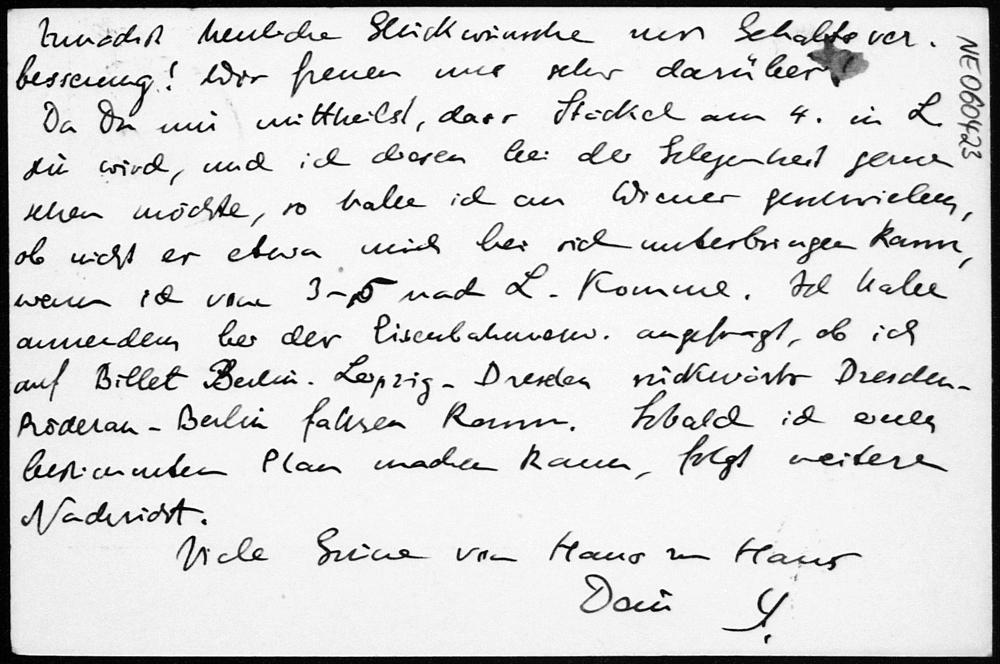 Zunächst herzliche Glückwünsche zur Gehaltsver-
besserung! Wir freuen uns sehr darüber!
Da Du mir mittheilst, dass Stäckel am 4. in L.
sein wird, und ich diesen bei der Gelegenheit gerne
sehen möchte, so habe ich an Wiener geschrieben,
ob nicht er etwa mich bei sich unterbringen kann,
wenn ich vom 3-5 nach L. komme. Ich habe
ausserdem bei der Eisenbahnverw. angefragt, ob ich
auf Billet Berlin-Leipzig-Dresden rückwärts Dresden-
Röderau-Berlin fahren kann. Sobald ich einen
bestimmten Plan machen kann, folgt weitere
Nachricht.
Viele Grüsse von Haus zu Haus
Dein
NE060423